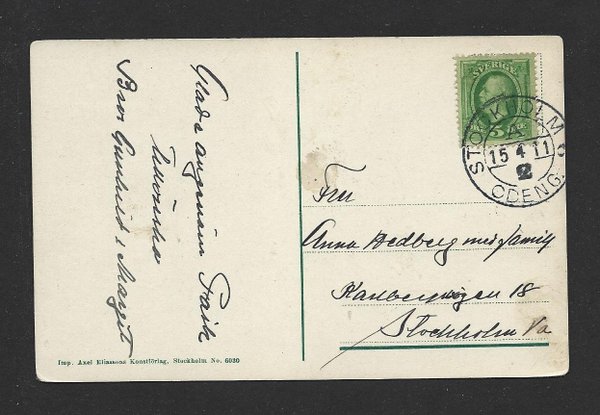 Glada angenäm Påsk
tillönska
Bror Gunhild & Margit
SVERIGE
5
STOCKHOLM 6
A
15 4 11
2
ODENG.
Fru
Anna Hedberg med familj
Karlbergsvägen 18
Stockholm Va
Imp. Axel Eliassons Konstförlag, Stockholm No. 6030